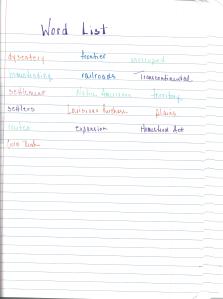 Word List
dysentery frontier
railroads Transcontinental
settlement Native Americans territory
settlers Louisiana Purchase plains
Expansion Homestead Act
Gold Rush